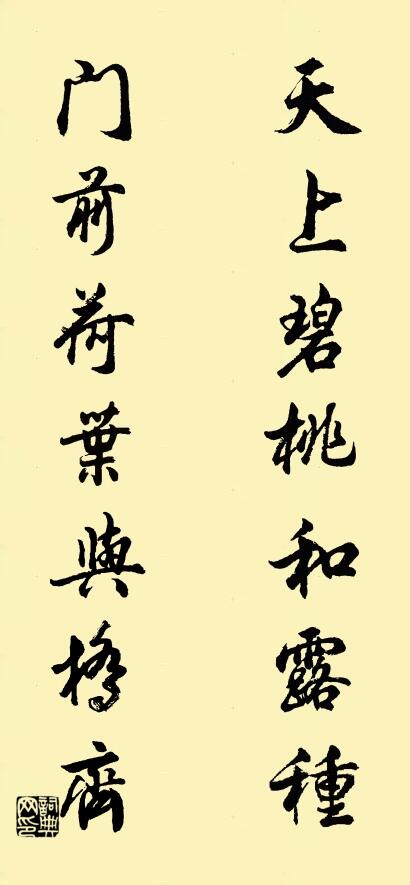 天上碧桃和露種
門前荷葉與橋齊
詞典网印